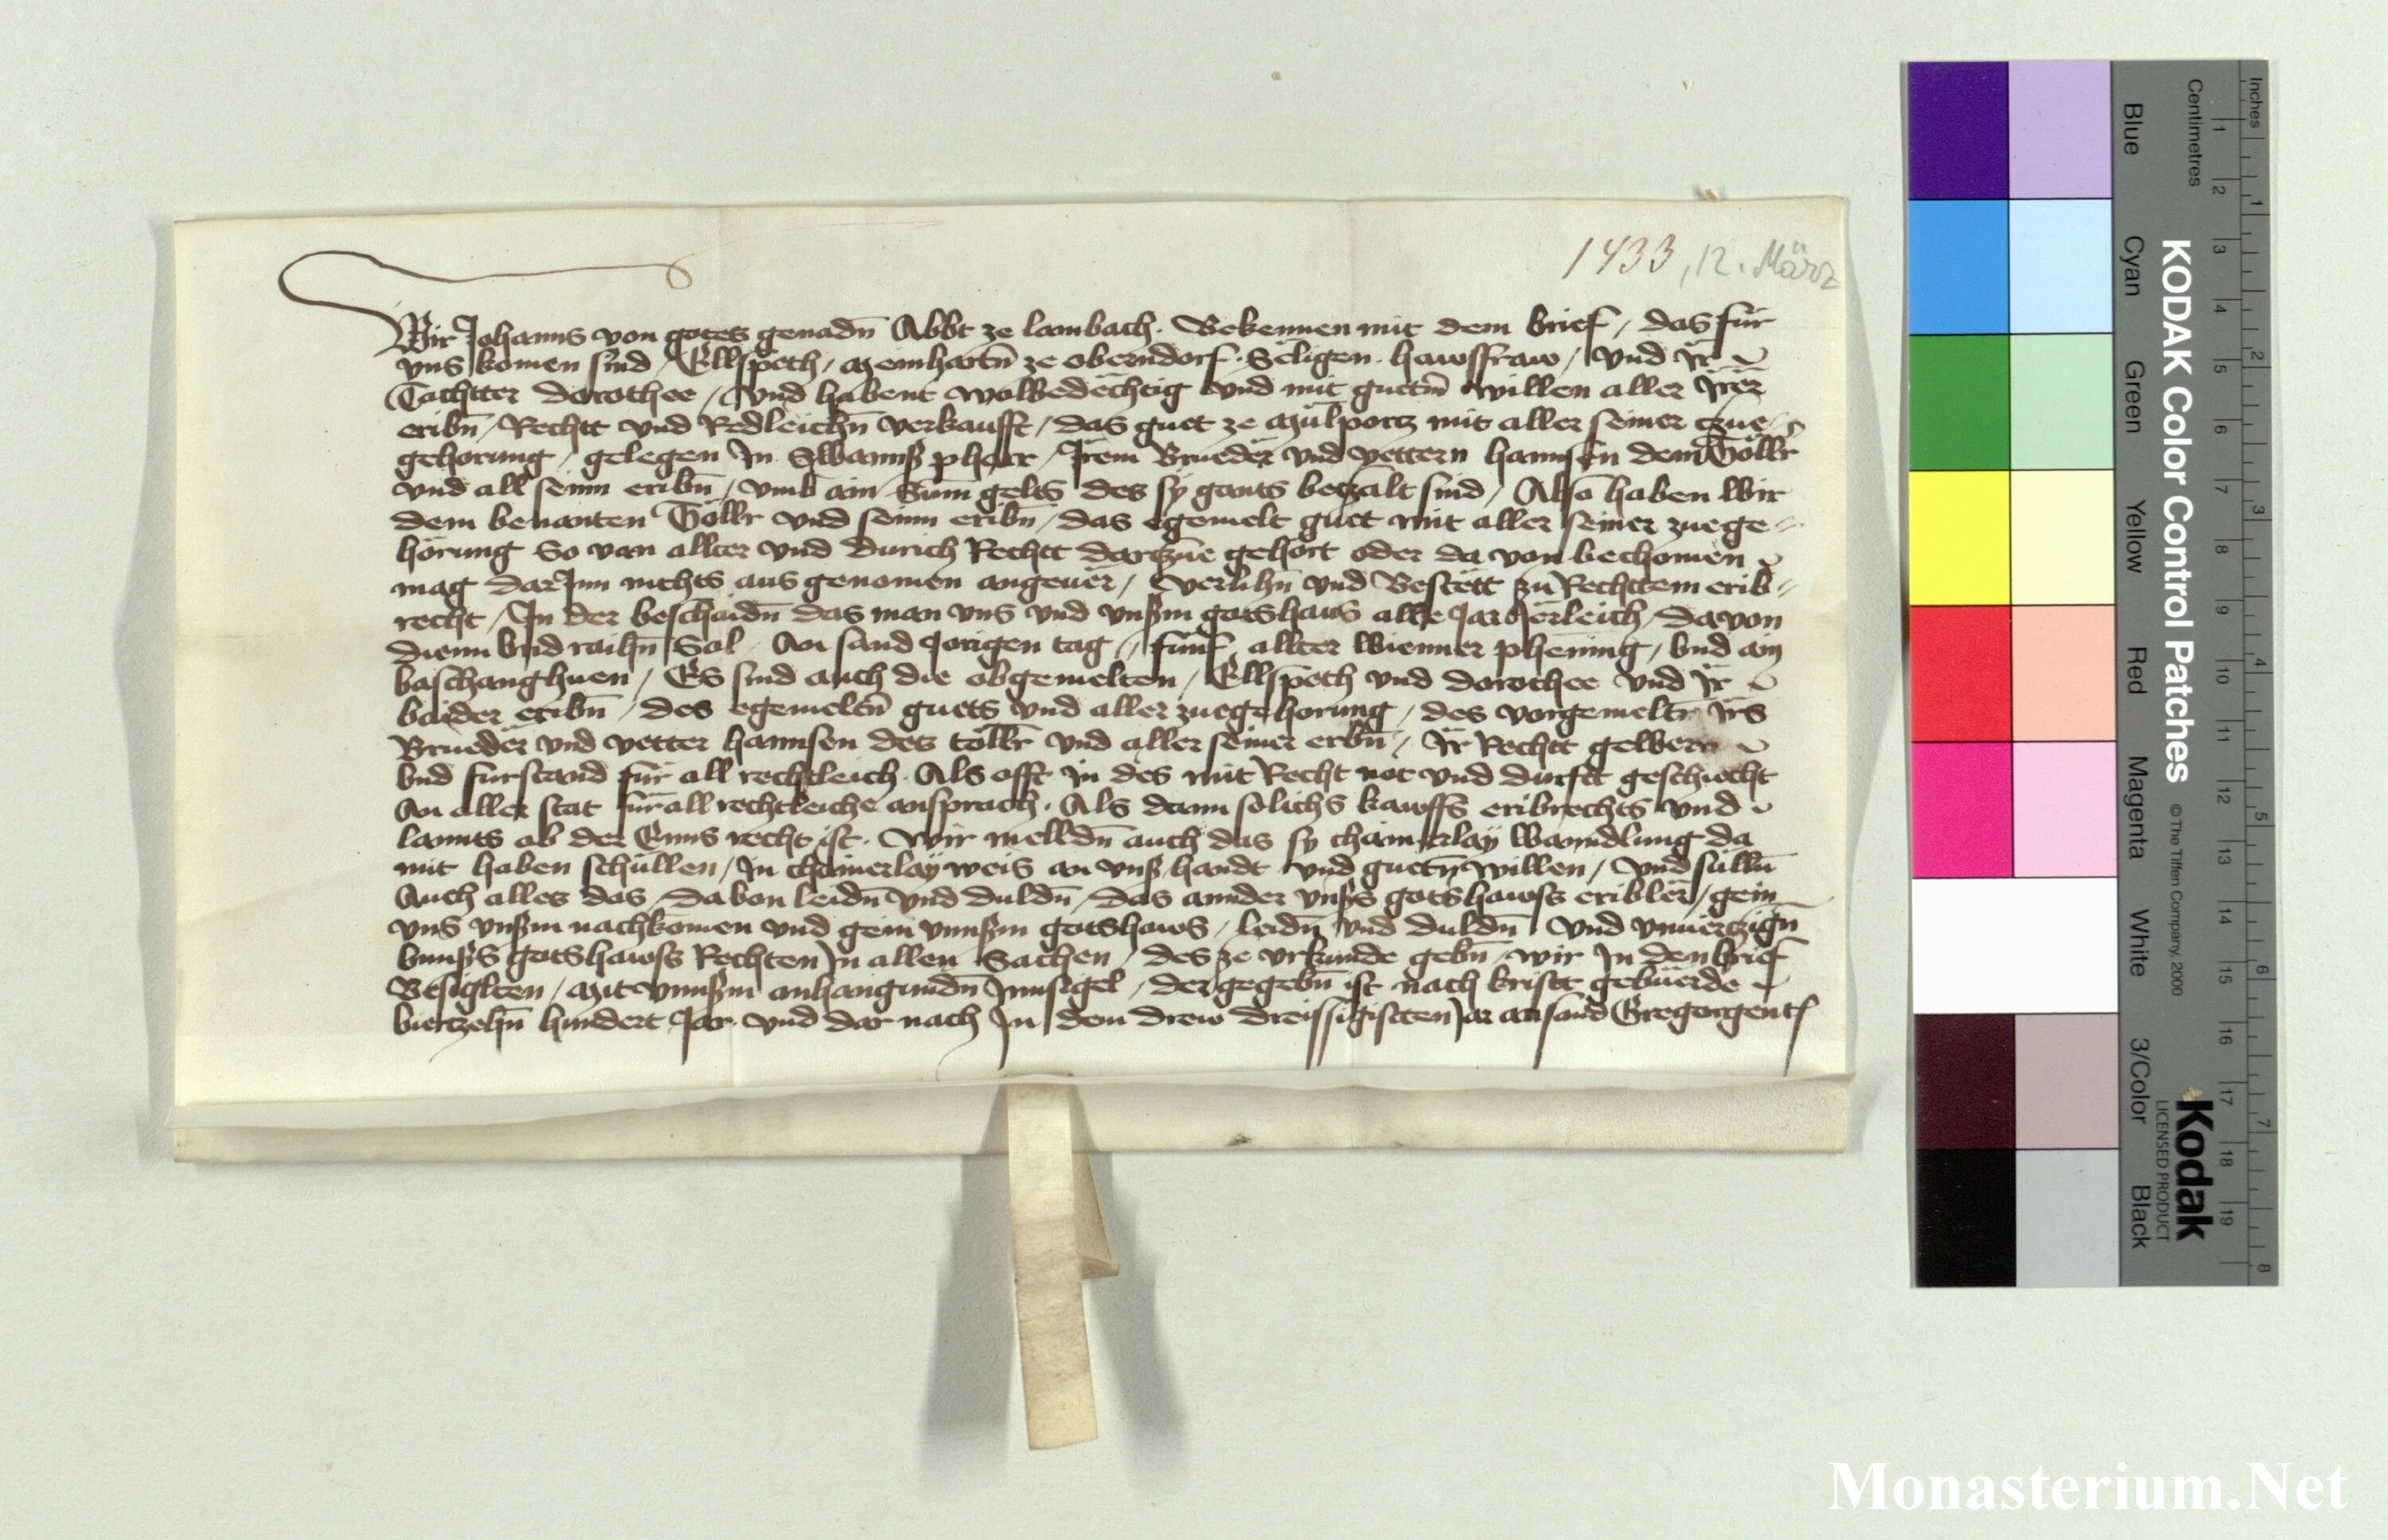 1433, 12. März
Wir Johanns von gotes genadn̄ Abbt ze lambach. Bekennen mit dem brief / das für
vns komen sind / Ellspeth / Meinhartn̄ ze oberndorf Seligen hawsfraw / vnd Jr
Tachtter dorothee / vnd habent wolbedechtig vnd mit guetm̄ willen aller Jrer
eribn̄ / Rechtt vnd Redleichn̄ verkaufft / das guet ze Mülportz mit aller seiner czue
gehorung / gelegen Jn Swannß pharr / Jrem Brueder vnd vettern hannsen dem Töllr
vnd all seinn eribn̄ / vmb ain Sum̄ gelts des sy gants betzalt sind / Also haben Wir
dem benanten Töllr vnd seinn eribn̄ / das egemelt guet mit aller seiner zuege
hörung So van allter vnd durich Rechtt dartzue gehört oder da von bechomen
mag darJnn nichts aus genomen angeuer / Verlihn̄ vnd Bestett zu Rechttem erib
recht / Jn der beschaidn̄ das man vns vnd vnßm gotshaus alle Jar Jerleich / da von
dienn vnd raihn̄ Sol / An sand Jorigen tag / fünf allter Wienner phening / vnd ain
vaschanghuen / Es sind auch die obgemelten / Ellspeth vnd dorothee vnd Jr
baider eribn̄ / des egemeltn̄ guets vnd aller zuegehorung / des vorgemeltn̄ Jrs
Brueder vnd vetter hannsen des töllr vnd aller seiner erbn̄ / Jr Rechtt gewern
vnd fürstand für all rechtleich. Als offt Jn des mit Recht not vnd durftt geschiecht
An aller stat für all rechtleiche ansprach. Als dann solichs kawffs eribrechts vnd
lannts ob der Enns recht ist. Wir melldn̄ auch das sy chainerlay Wanndlung da
mit haben schüllen / Jn chainerlay weis an vnß handt vnd guetn̄ willen / Vnd sülln̄
Auch alles das / da von leidn̄ vnd duldn̄ / das annder vnßs gotshawss eribler / gein
vns vnßm nachkomen vnd gein vnnßm gotshaws / leidn̄ vnd duldn̄ / Vnd vnuertzign̄
vnnßs gotshawss Rechten Jn allen Sachen / des ze vrkunde gebn̄ / wir Jn den brief
Besiglten / Mit vnnßm anhangundn̄ Jnnsigel / der gegebn̄ ist nach kristi gebuerde
viertzehn̄ hundert Jar vnd dar nach Jn dem drew dreissigistten Jar an sand Gregorgent
Inches
Centimetres
KODAK Color Control Patches
© The Tiffen Company, 2000
Kodak
LICENSED PRODUCT
Blue
Cyan
Green
Yellow
Red
Magenta
White
3/Color
Black
1 2 3 4 5 6 7 8 9 10 11 12 13 14 15 16 17 18 19
1 2 3 4 5 6 7 8
Monasterium.Net